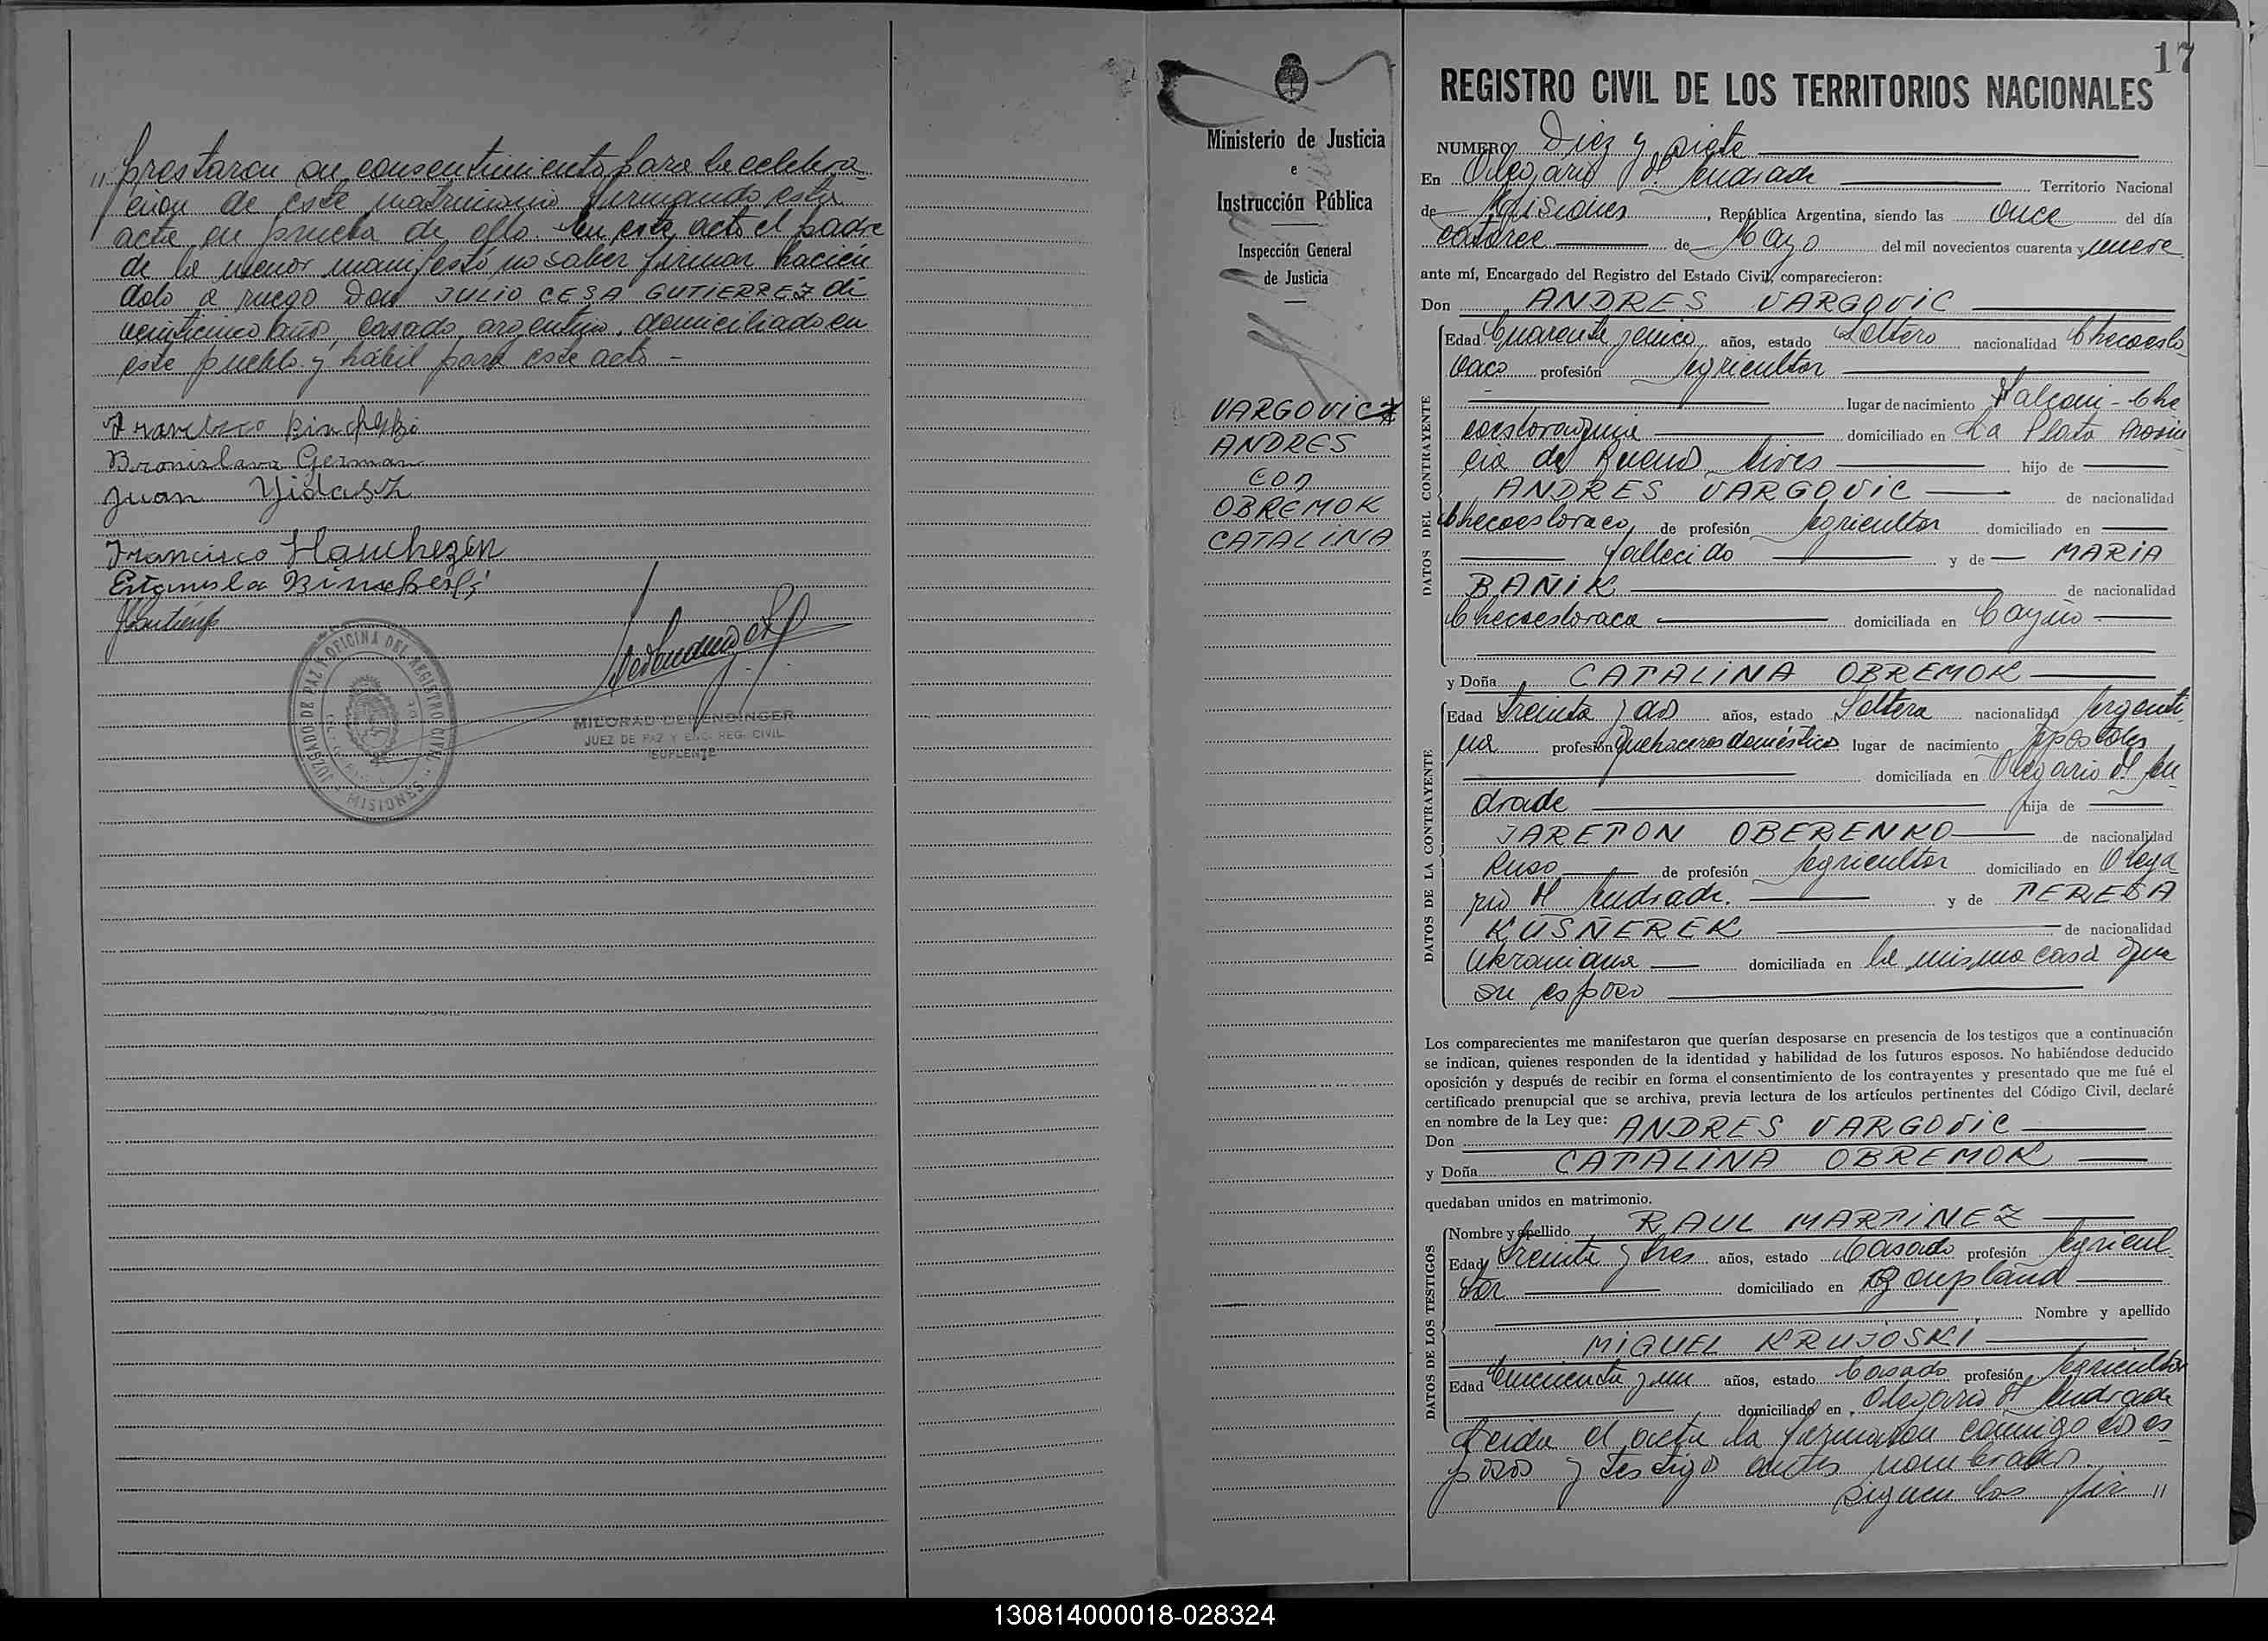 „ prestaron su consentimiento para la celebra-
ción de este matrimonio firmando esta
acta en prueba de ello. En este acto el padre
de la menor manifestó no saber firmar hacien
dolo a ruego Don JULIO CESA GUTIERREZ de
veinticinco años, casado, argentino, domiciliado en
este pueblo y hábil para este acto -
Bronislava German
Juan Yidasz
Francisco
JUZGADO DE PAZ Y OFICINA DEL REGISTRO CIVIL
MISIONES
MILORAD DEDENDINGER
JUEZ DE PAZ Y ENC. REG. CIVIL
SUPLENTE
Ministerio de Justicia
e
Instrucción Pública
Inspección General
de Justicia
VARGOVICZ
ANDRES
con
OBREMOK
CATALINA
17
REGISTRO CIVIL DE LOS TERRITORIOS NACIONALES
NUMERO Diez y siete
En Olegario V. Andrade Territorio Nacional
de Misiones, República Argentina, siendo las once del día
catorce de Mayo del mil novecientos cuarenta y nueve
ante mí, Encargado del Registro del Estado Civil, comparecieron:
Don ANDRES VARGOVIC
DATOS DEL CONTRAYENTE
Edad Cuarenta y cinco años, estado Soltero nacionalidad Checoeslo
vaco profesión Agricultor
lugar de nacimiento Falcain - Che
coeslovaquia domiciliado en La Plata Provin
cia de Buenos Aires hijo de
ANDRES VARGOVIC de nacionalidad
Checoeslovaco de profesión Agricultor domiciliado en
fallecido y de MARIA
BAÑIK de nacionalidad
Checoeslovaca domiciliada en
y Doña CATALINA OBREMOK
DATOS DE LA CONTRAYENTE
Edad Treinta y dos años, estado Soltera nacionalidad Argenti
na profesión Quehaceres domésticos lugar de nacimiento Apóstoles
domiciliada en Olegario V. An
drade hija de
JARETON OBERENKO de nacionalidad
Ruso de profesión Agricultor domiciliado en Olega
rio V. Andrade. y de TERESA
KUSÑEREK de nacionalidad
Ukraniana domiciliada en la misma casa que
su esposo
Los comparecientes me manifestaron que querían desposarse en presencia de los testigos que a continuación
se indican, quienes responden de la identidad y habilidad de los futuros esposos. No habiéndose deducido
oposición y después de recibir en forma el consentimiento de los contrayentes y presentado que me fué el
certificado prenupcial que se archiva, previa lectura de los artículos pertinentes del Código Civil, declaré
en nombre de la Ley que:
Don ANDRES VARGOVIC
y Doña CATALINA OBREMOK
quedaban unidos en matrimonio.
DATOS DE LOS TESTIGOS
Nombre y apellido RAUL MARTINEZ
Edad Treinta y tres años, estado Casado profesión Agricul
tor domiciliado en Bonpland
Nombre y apellido
MIGUEL KRUJOSKI
Edad Cincuenta y un años, estado Casado profesión Agricultor
domiciliado en Olegario V. Andrade
Leida el acta la firmaron conmigo los es-
posos y testigos antes nombrados.
Siguen las fir "
130814000018-028324